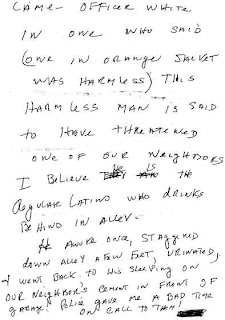 CAME - OFFICER WHITE
IN ONE WHO SAID
(ONE IN ORANGE JACKET
WAS HARMLESS) THIS
HARMLESS MAN IS SAID
TO HAVE THREATENED
ONE OF OUR NEIGHBORS
I BELIEVE HE IS THE
REGULAR LATINO WHO DRINKS
BEHIND IN ALLEY.
HE AWOKE ONCE, STAGGERED
DOWN ALLEY A FEW FEET, URINATED,
& WENT BACK TO HIS SLEEPING ON
OUR NEIGHBOR'S CEMENT IN FRONT OF
GARAGE. POLICE GAVE ME A BAD TIME
ON CALL TO THEM!